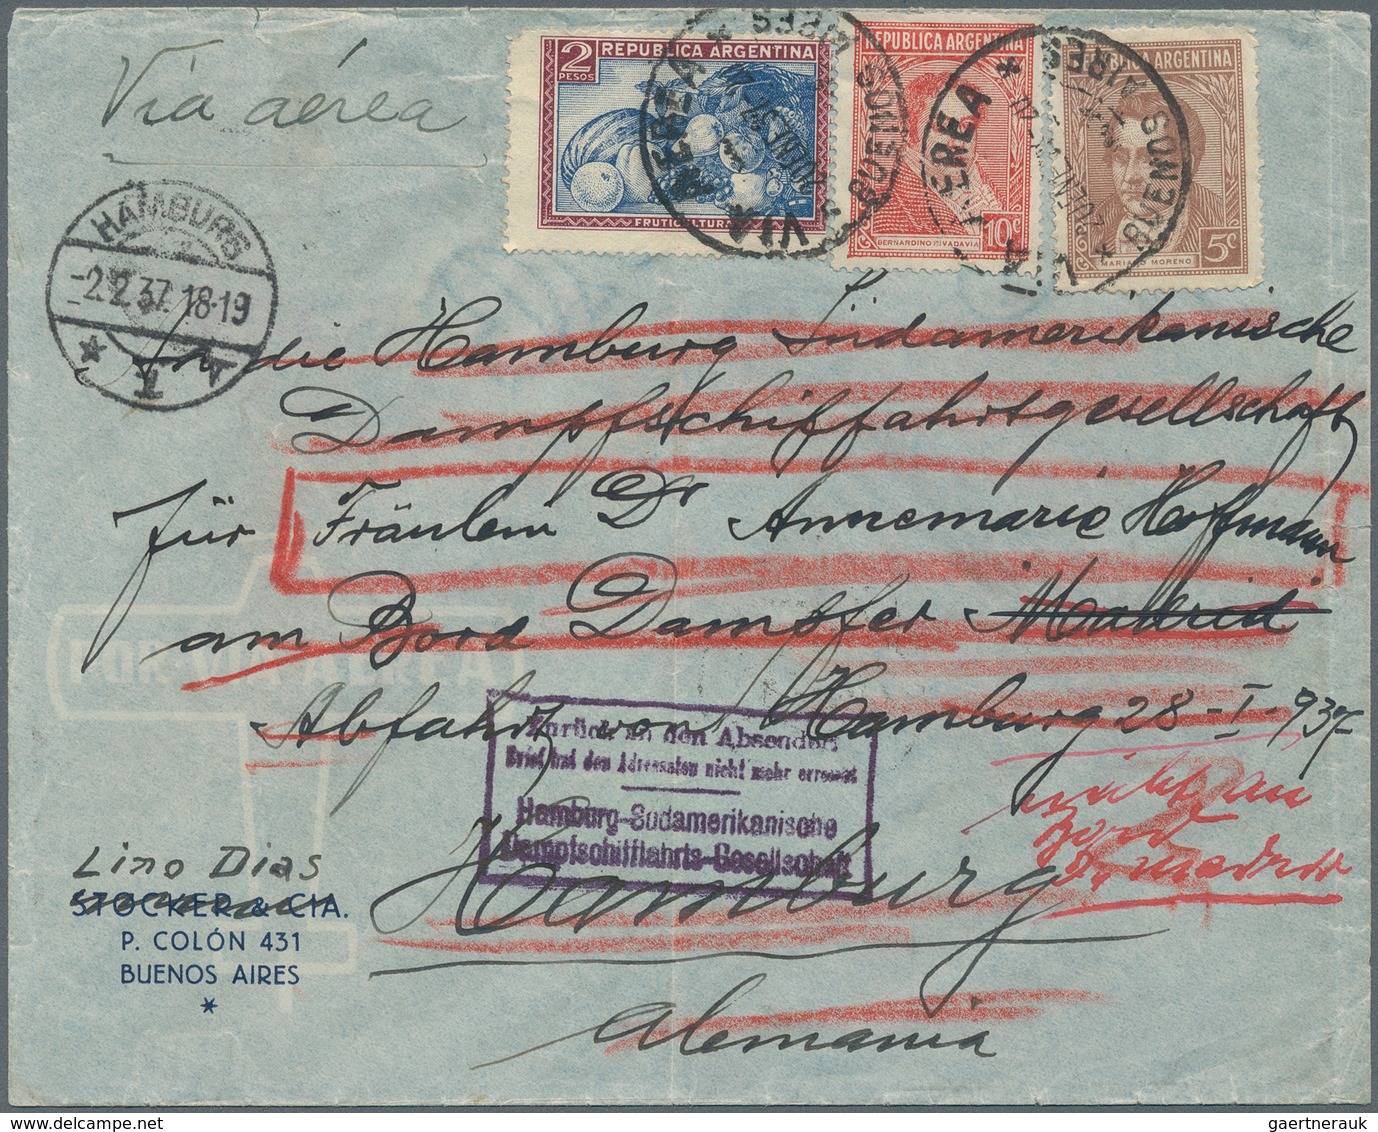 Via aérea
2 PESOS REPUBLICA ARGENTINA
FRUTICULTURA
REPUBLICA ARGENTINA
BERNARDINO RIVADAVIA 10c
REPUBLICA ARGENTINA
MARIANO MORENO 5c
VIA AEREA * BUENOS AIRES
VIA AEREA * BUENOS AIRES
HAMBURG
-2.2.37.18-19
* 1
An die Hamburg Südamerikanische
Dampfschiffahrtgesellschaft
für Fräulein Dr Annemarie Hoffmann
am Bord Dampfer Madrid
Abfahrt von Hamburg 28-I-937
Zurück an den Absender
Brief hat den Adressaten nicht mehr erreicht
Hamburg-Südamerikanische
Dampfschifffahrts-Gesellschaft
nicht an
Bord
D. Madrid
Hamburg
Alemania
POR VIA AEREA
Lino Dias
STOCKER & CIA.
P. COLÓN 431
BUENOS AIRES
*
gaertnerauk